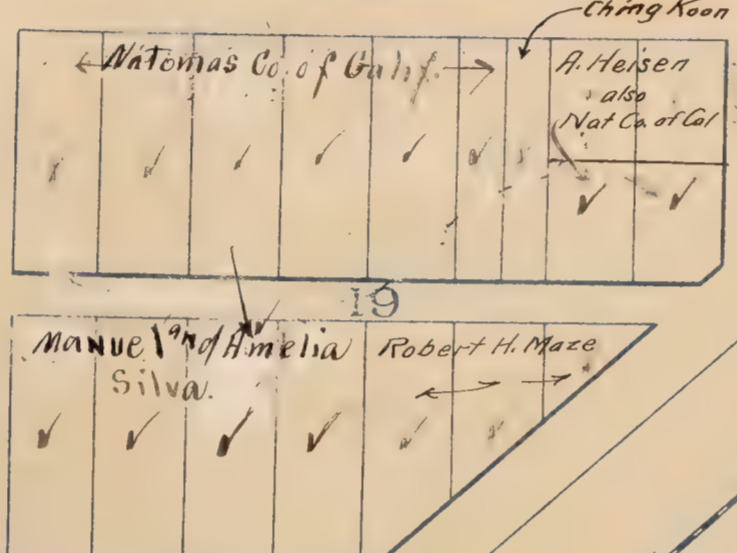 Ching Koon
Natomas Co. of Calif.
A. Heisen
also
Nat Co. of Cal
19
Manuel and Amelia
Silva.
Robert H. Maze